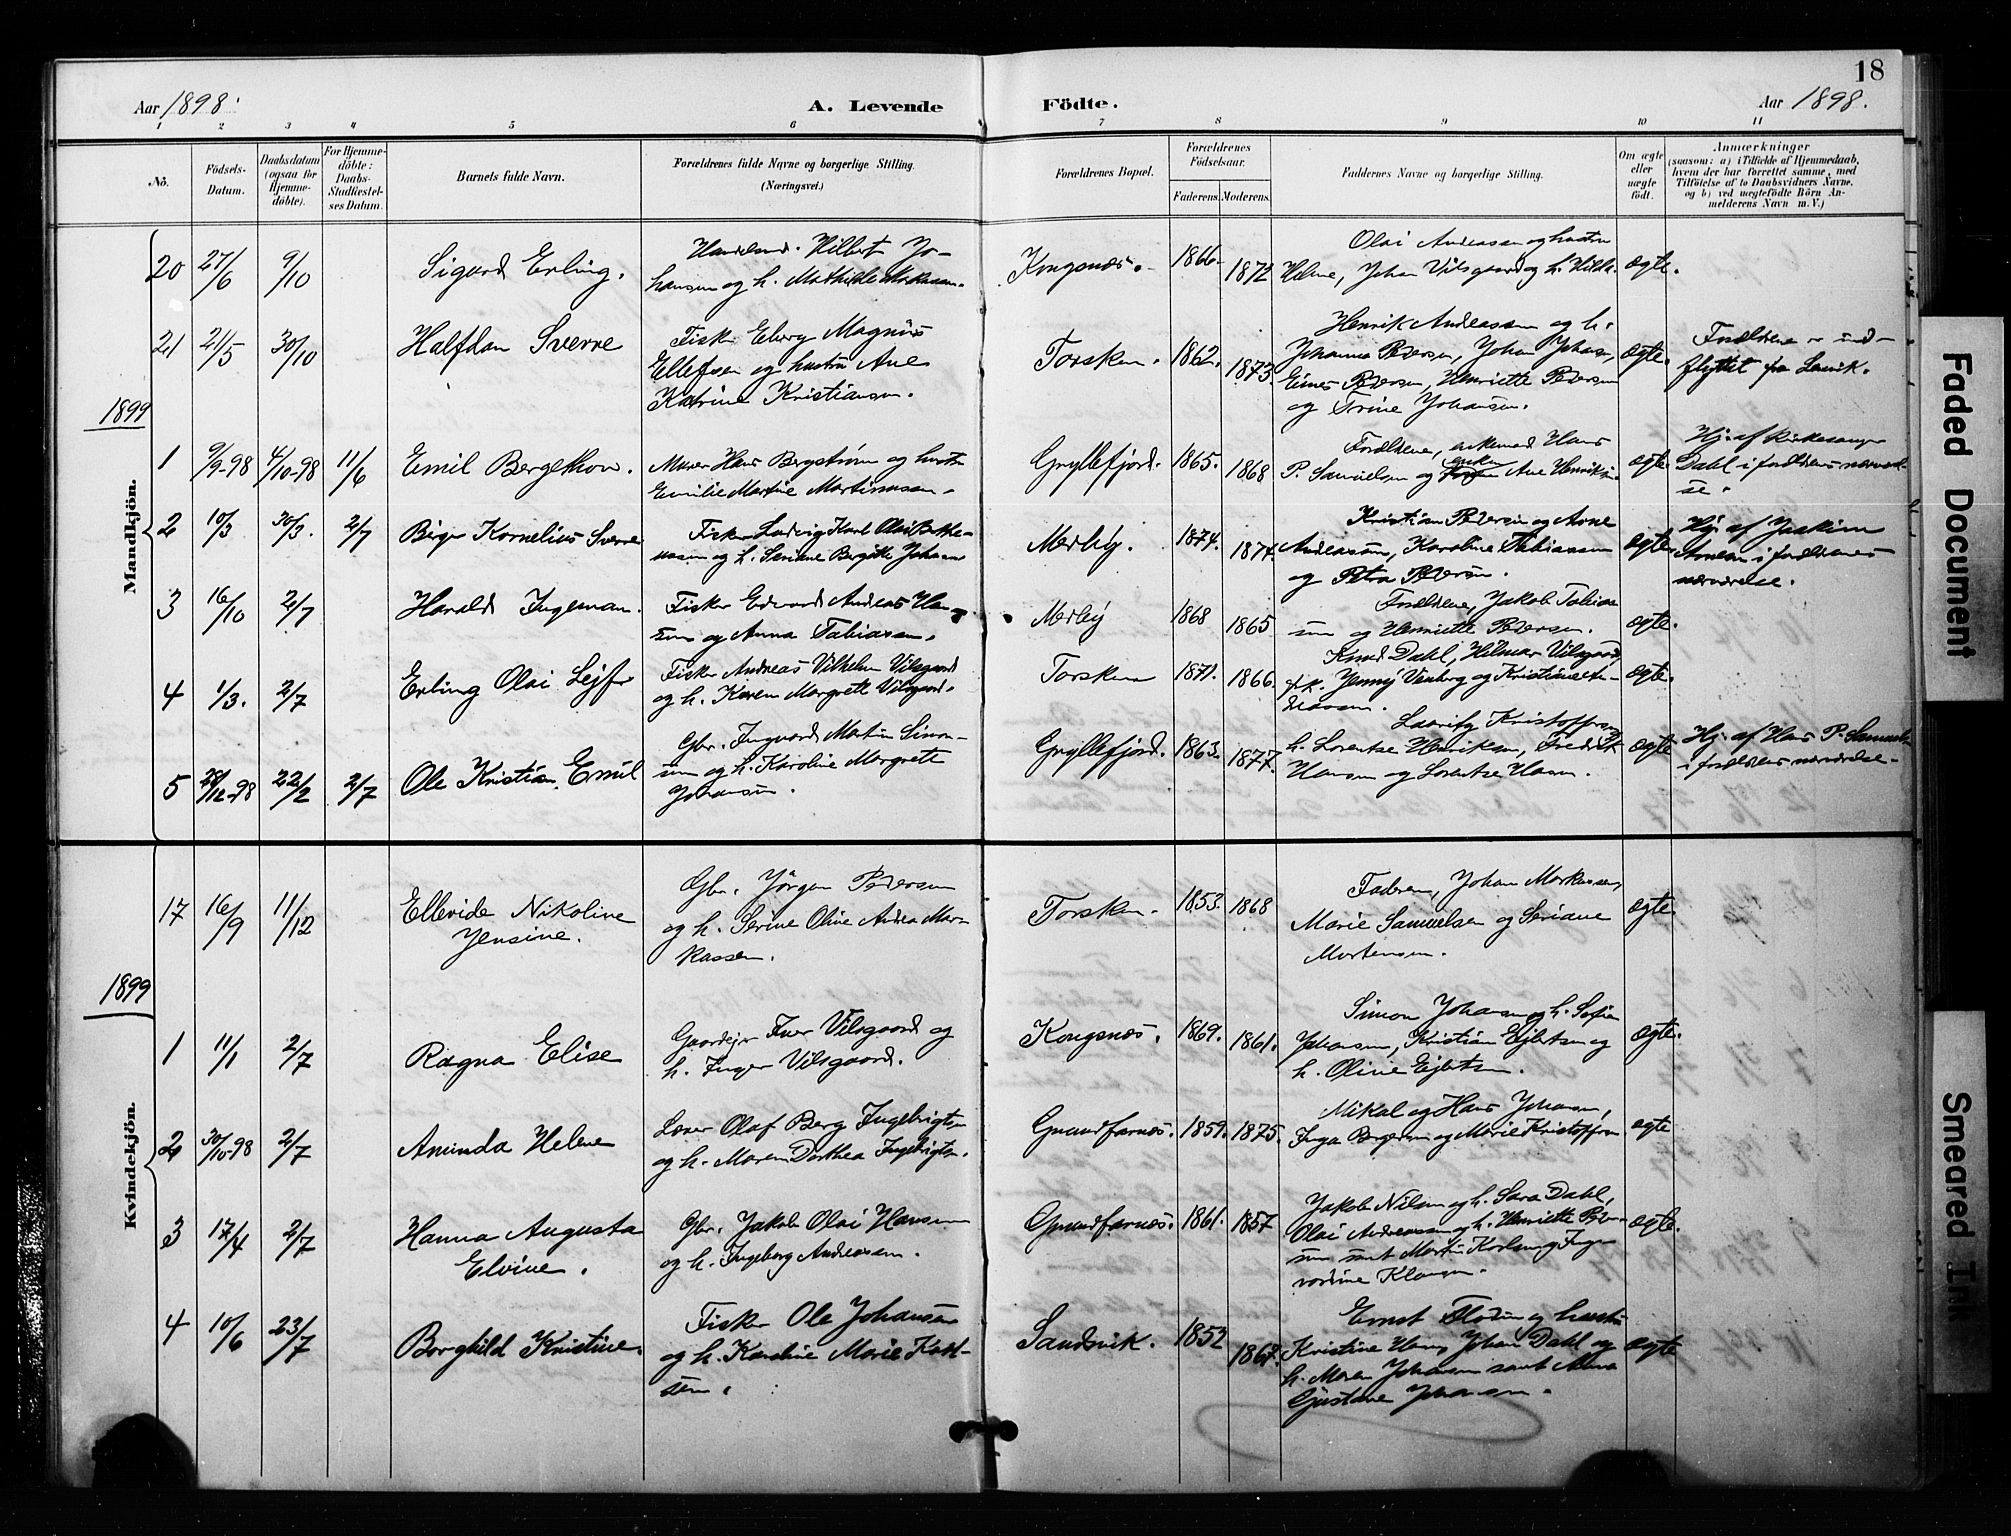 18
Aar 1898. A. Levende Födte. Aar 1898.
1 2 3 4 5 6 7 8 9 10 11
No. Födsels-Datum. Daabsdatum (ogsaa for Hjemme-döbte). For Hjemme-döbte: Daabs-Stadfæstel-ses Datum. Barnets fulde Navn. Forældrenes fulde Navne og borgerlige Stilling. (Næringsvei.) Forældrenes Bopæl. Forældrenes Födselsaar. Faderens. Moderens. Faddernes Navne og borgerlige Stilling. Om ægte eller uægte födt. Anmærkninger (saasom: a) i Tilfælde af Hjemmedaab, hvem der har forrettet samme, med Tilföielse af to Daabsvidners Navne, og b) ved uægtefödte Börn An-melderens Navn m. V.)
Mandkjön.
20 27/6 9/10 Sigurd Erling. Handelsmd. Hilbert Jo-
hansen og h. Mathilde Markussen. Kongsnæs. 1866. 1872 Olai Andreassen og hustru
Helene, Johan Vilsgaard og h. Hilda. ægte.
21 21/5 30/10 Halfdan Sverre Fisker Eberg Magnus
Ellefsen og hustru Ane
Katrine Kristiansen. Torsken. 1862. 1873. Henrik Andreassen og h.
Johanna Pedersen, Johan Johansen,
Pedersen, Henriette Pedersen
og Trine Johansen. ægte. Forældrene er ind-
flyttet fra
1899
1 9/9-98 4/10-98 11/6 Emil Bergethon. Murer Hans Bergstrøm og hustru
Emilie Martine Martinussen. Gryllefjord. 1865. 1868 Forældrene, enkemand Hans
P. Samuelsen og enken Ane Henriksen. ægte. Hj. af kirkesanger
Dahl i forældrenes nærvæ-
se.
2 10/3 30/3. 2/7 Birger Kornelius Sverre Fisker Ludvig Karl Olai
og h. Seriane Birgitte Johansen Medby. 1874. 1874. Kristian Pedersen og Arne
Andreassen, Karoline Tobiassen
og Petra Pedersen. ægte. Hj. af Joakim
Arnesen i forældrenes
nærværelse.
3 16/10 2/7 Harald Ingeman. Fisker Edvard Andreas Han-
sen og Anna Tobiassen. Medby 1868 1865 Forældrene, Jakob Tobias-
sen og Henriette Pedersen. ægte.
4 1/3. 2/7 Erling Olai Lejfr Fisker Andreas Vilhelm Vilsgaard
og h. Karen Margrete Vilsgaard. Torsken 1871. 1866. Knud Dahl, Hilmar Vilsgaard,
frk. Jenny Vinberg og Kristiane An-
dreassen. ægte.
5 28/12-98 22/2 2/7 Ole Kristian Emil Gbr. Ingvard Martin Simon-
sen og h. Karoline Margrete
Johansen. Gryllefjord. 1863. 1877. Kristoffersen,
h. Lorentse Henriksen, Fredrik
Hansen og Lorentse Hansen. ægte Hj. af Hans P. Samuels.
i forældres nærværelse.
Kvindekjön.
17 16/9 11/12 Ellevide Nikoline
Jensine. Gbr. Jørgen Pedersen
og h. Serine Oline Andrea Mar-
kussen. Torsken. 1853. 1868 Faderen, Johan Markussen,
Marie Samuelsen og Seriane
Mortensen. ægte.
1899
1 11/1 2/7 Ragna Elise Gaardejer Iver Vilsgaard og
h. Inger Vilsgaard. Kongsnæs. 1869. 1861. Simon Johansen og h. Sofie
Johansen, Kristian Ejlertsen og
h. Oline Ejlertsen. ægte.
2 30/10-98 2/7 Aminda Helene Lærer Olaf Berg Ingebrigtsen
og h. Maren Dorthea Ingebrigtsen. Grundfarnæs. 1859. 1875. Mikal og Hans Johansen,
Inga Birgersen og Marie Kristoffersen ægte
3 17/4 2/7 Hanna Augusta
Elvine. Gbr. Jakob Olai Hansen
og h. Ingeborg Andreassen. Grundfarnæs. 1861. 1857 Jakob Nilsen og h. Sara Dahl,
Olai Andreassen og h. Henriette Peder-
sen samt Martin Karlsen og Inge-
vardine Klausen. ægte.
4 10/6 23/7 Borghild Kristine. Fisker Ole Johansen
og h. Karoline Marie Karl-
sen. Sandsvik. 1852 1867. Ernst Flodin og hustru
Kristine Hansen, Johan Dahl og
h. Maren Johansen samt Anna
Gustave Johansen. ægte
Faded Document
Smeared Ink